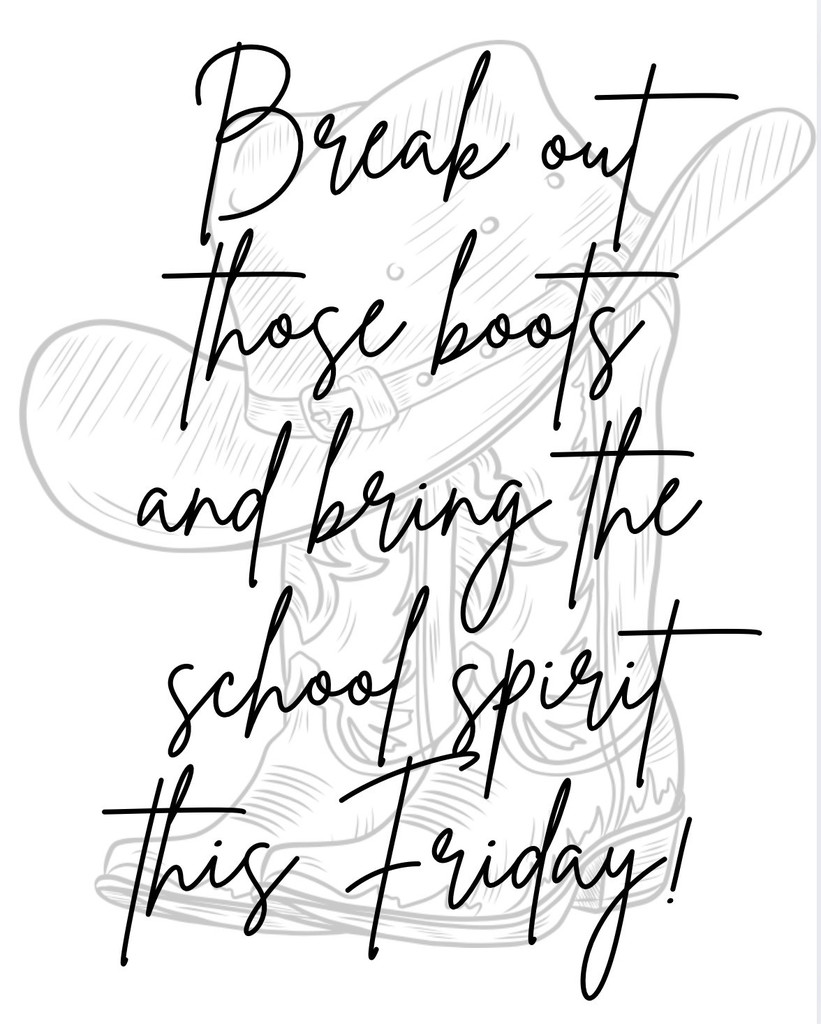 Break out
those boots
and bring the
school spirit
this Friday!